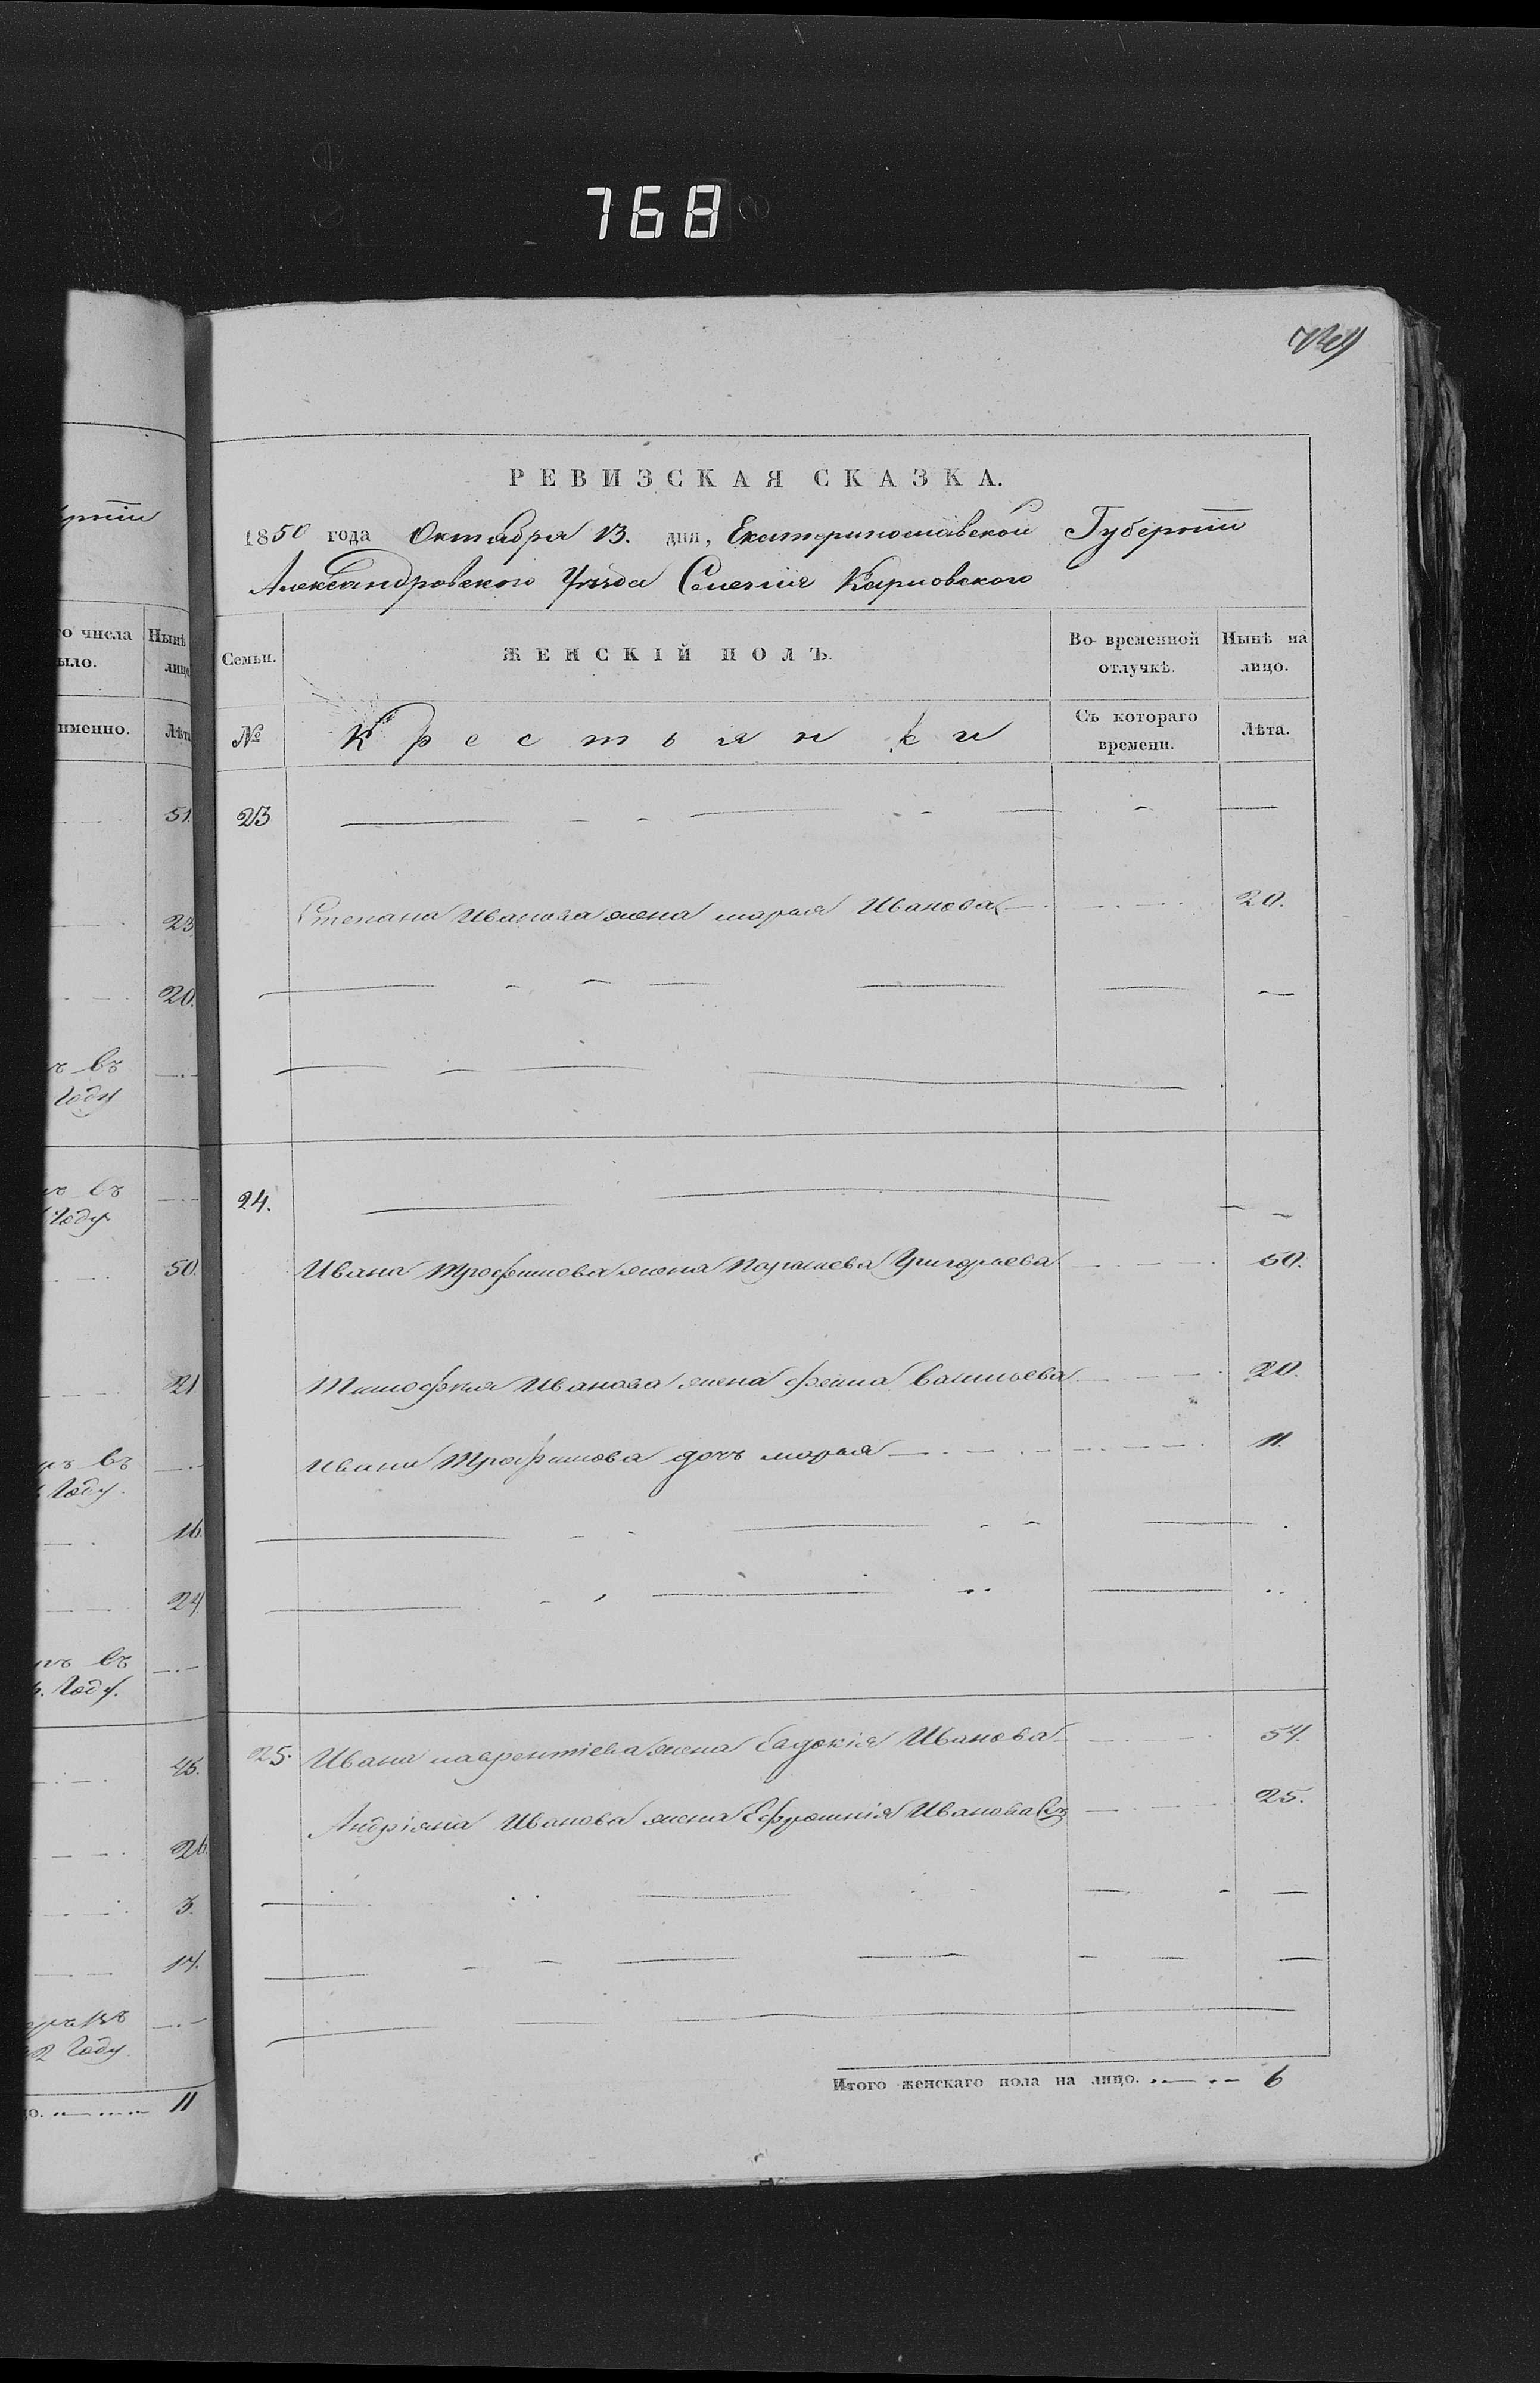 768
РЕВИЗСКАЯ СКАЗКА.
1850 года Октября 13. дня, Екатеринославской Губерніи
Александровского Уѣзда Селенія Карповского
Семьи. ЖЕНСКІЙ ПОЛЪ. Во временной отлучкѣ. Нынѣ на лицо.
№ Крестьянки Съ котораго времени. Лѣта.
23
Степана Иванова жена марья Иванова 20.
24.
Ивана Трофимова жена Параскева Григорьева 50.
Тимофѣя Иванова жена Васильева 20.
Ивана Трофимова дочь марья 11.
25. Ивана лаврентіева жена Евдокія Иванова 54.
Андріяна Иванова жена Ефросинія Иванова 25.
Итого женскаго пола на лицо. 6
го числа
ыло.
Нынѣ
лицо
именно.
Лѣта
51.
23
20.
въ
Году
въ
Году
50.
21.
въ
Году.
16.
24.
въ
Году.
45.
26.
3.
14.
Году.
11